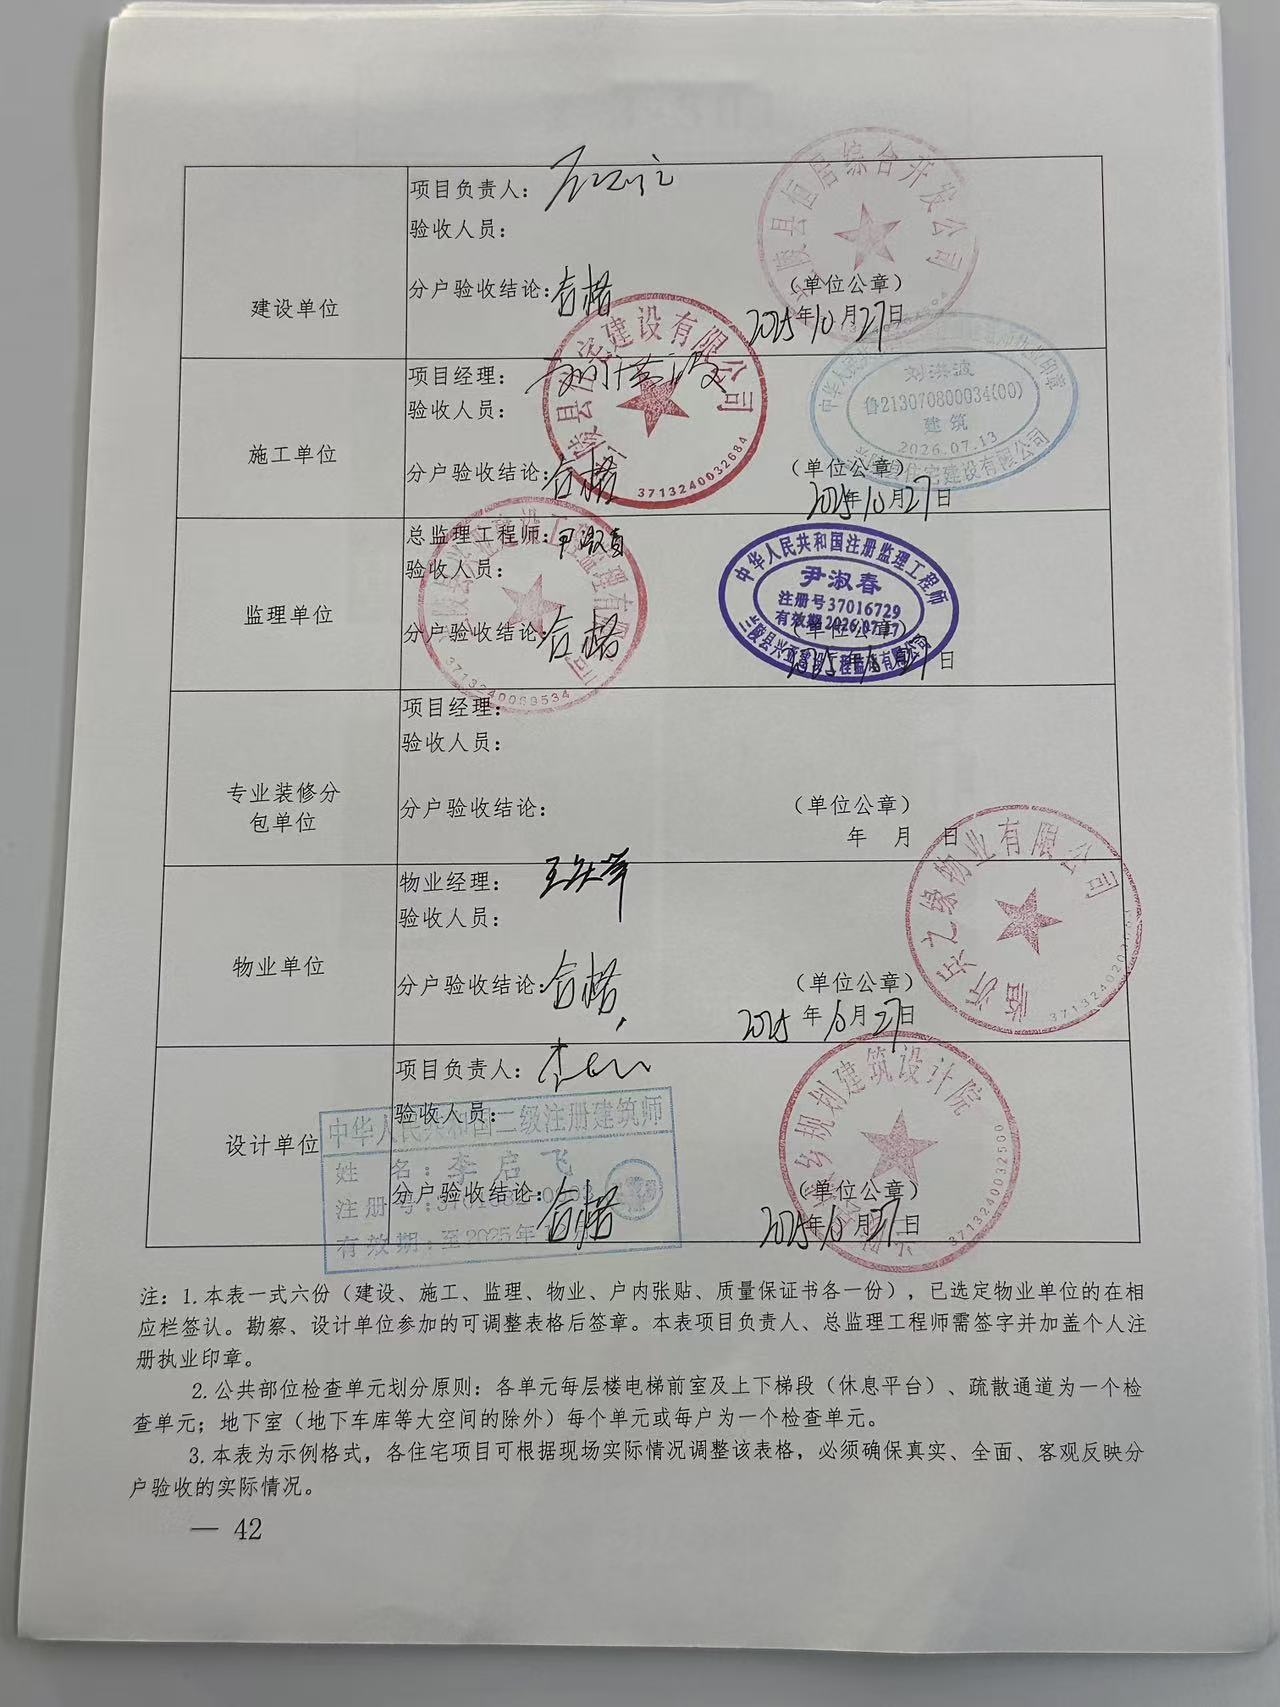 项目负责人：
验收人员：
建设单位
分户验收结论：合格
（单位公章）
2025年10月27日
县恒居综合开发公司
项目经理：
验收人员：
施工单位
分户验收结论：合格
（单位公章）
2025年10月27日
建设有限公司
3713240032684
刘洪波
鲁213070800034(00)
建筑
2026.07.13
兰陵县住宅建设有限公司
总监理工程师：尹淑春
验收人员：
监理单位
分户验收结论：合格
（单位公章）
2025年10月27日
3713240069534
中华人民共和国注册监理工程师
尹淑春
注册号37016729
有效期2026.07.17
项目经理：
验收人员：
专业装修分
包单位
分户验收结论：
（单位公章）
年 月 日
物业经理：
验收人员：
物业单位
分户验收结论：合格
（单位公章）
2025年10月27日
临沂兵之缘物业有限公司
项目负责人：
验收人员：
设计单位
分户验收结论：合格
（单位公章）
2025年10月27日
乡规划建筑设计院
3713240032500
中华人民共和国二级注册建筑师
姓 名：李启飞
注册号：
有效期：至2025年
注：1.本表一式六份（建设、施工、监理、物业、户内张贴、质量保证书各一份），已选定物业单位的在相
应栏签认。勘察、设计单位参加的可调整表格后签章。本表项目负责人、总监理工程师需签字并加盖个人注
册执业印章。
2.公共部位检查单元划分原则：各单元每层楼电梯前室及上下梯段（休息平台）、疏散通道为一个检
查单元；地下室（地下车库等大空间的除外）每个单元或每户为一个检查单元。
3.本表为示例格式，各住宅项目可根据现场实际情况调整该表格，必须确保真实、全面、客观反映分
户验收的实际情况。
— 42